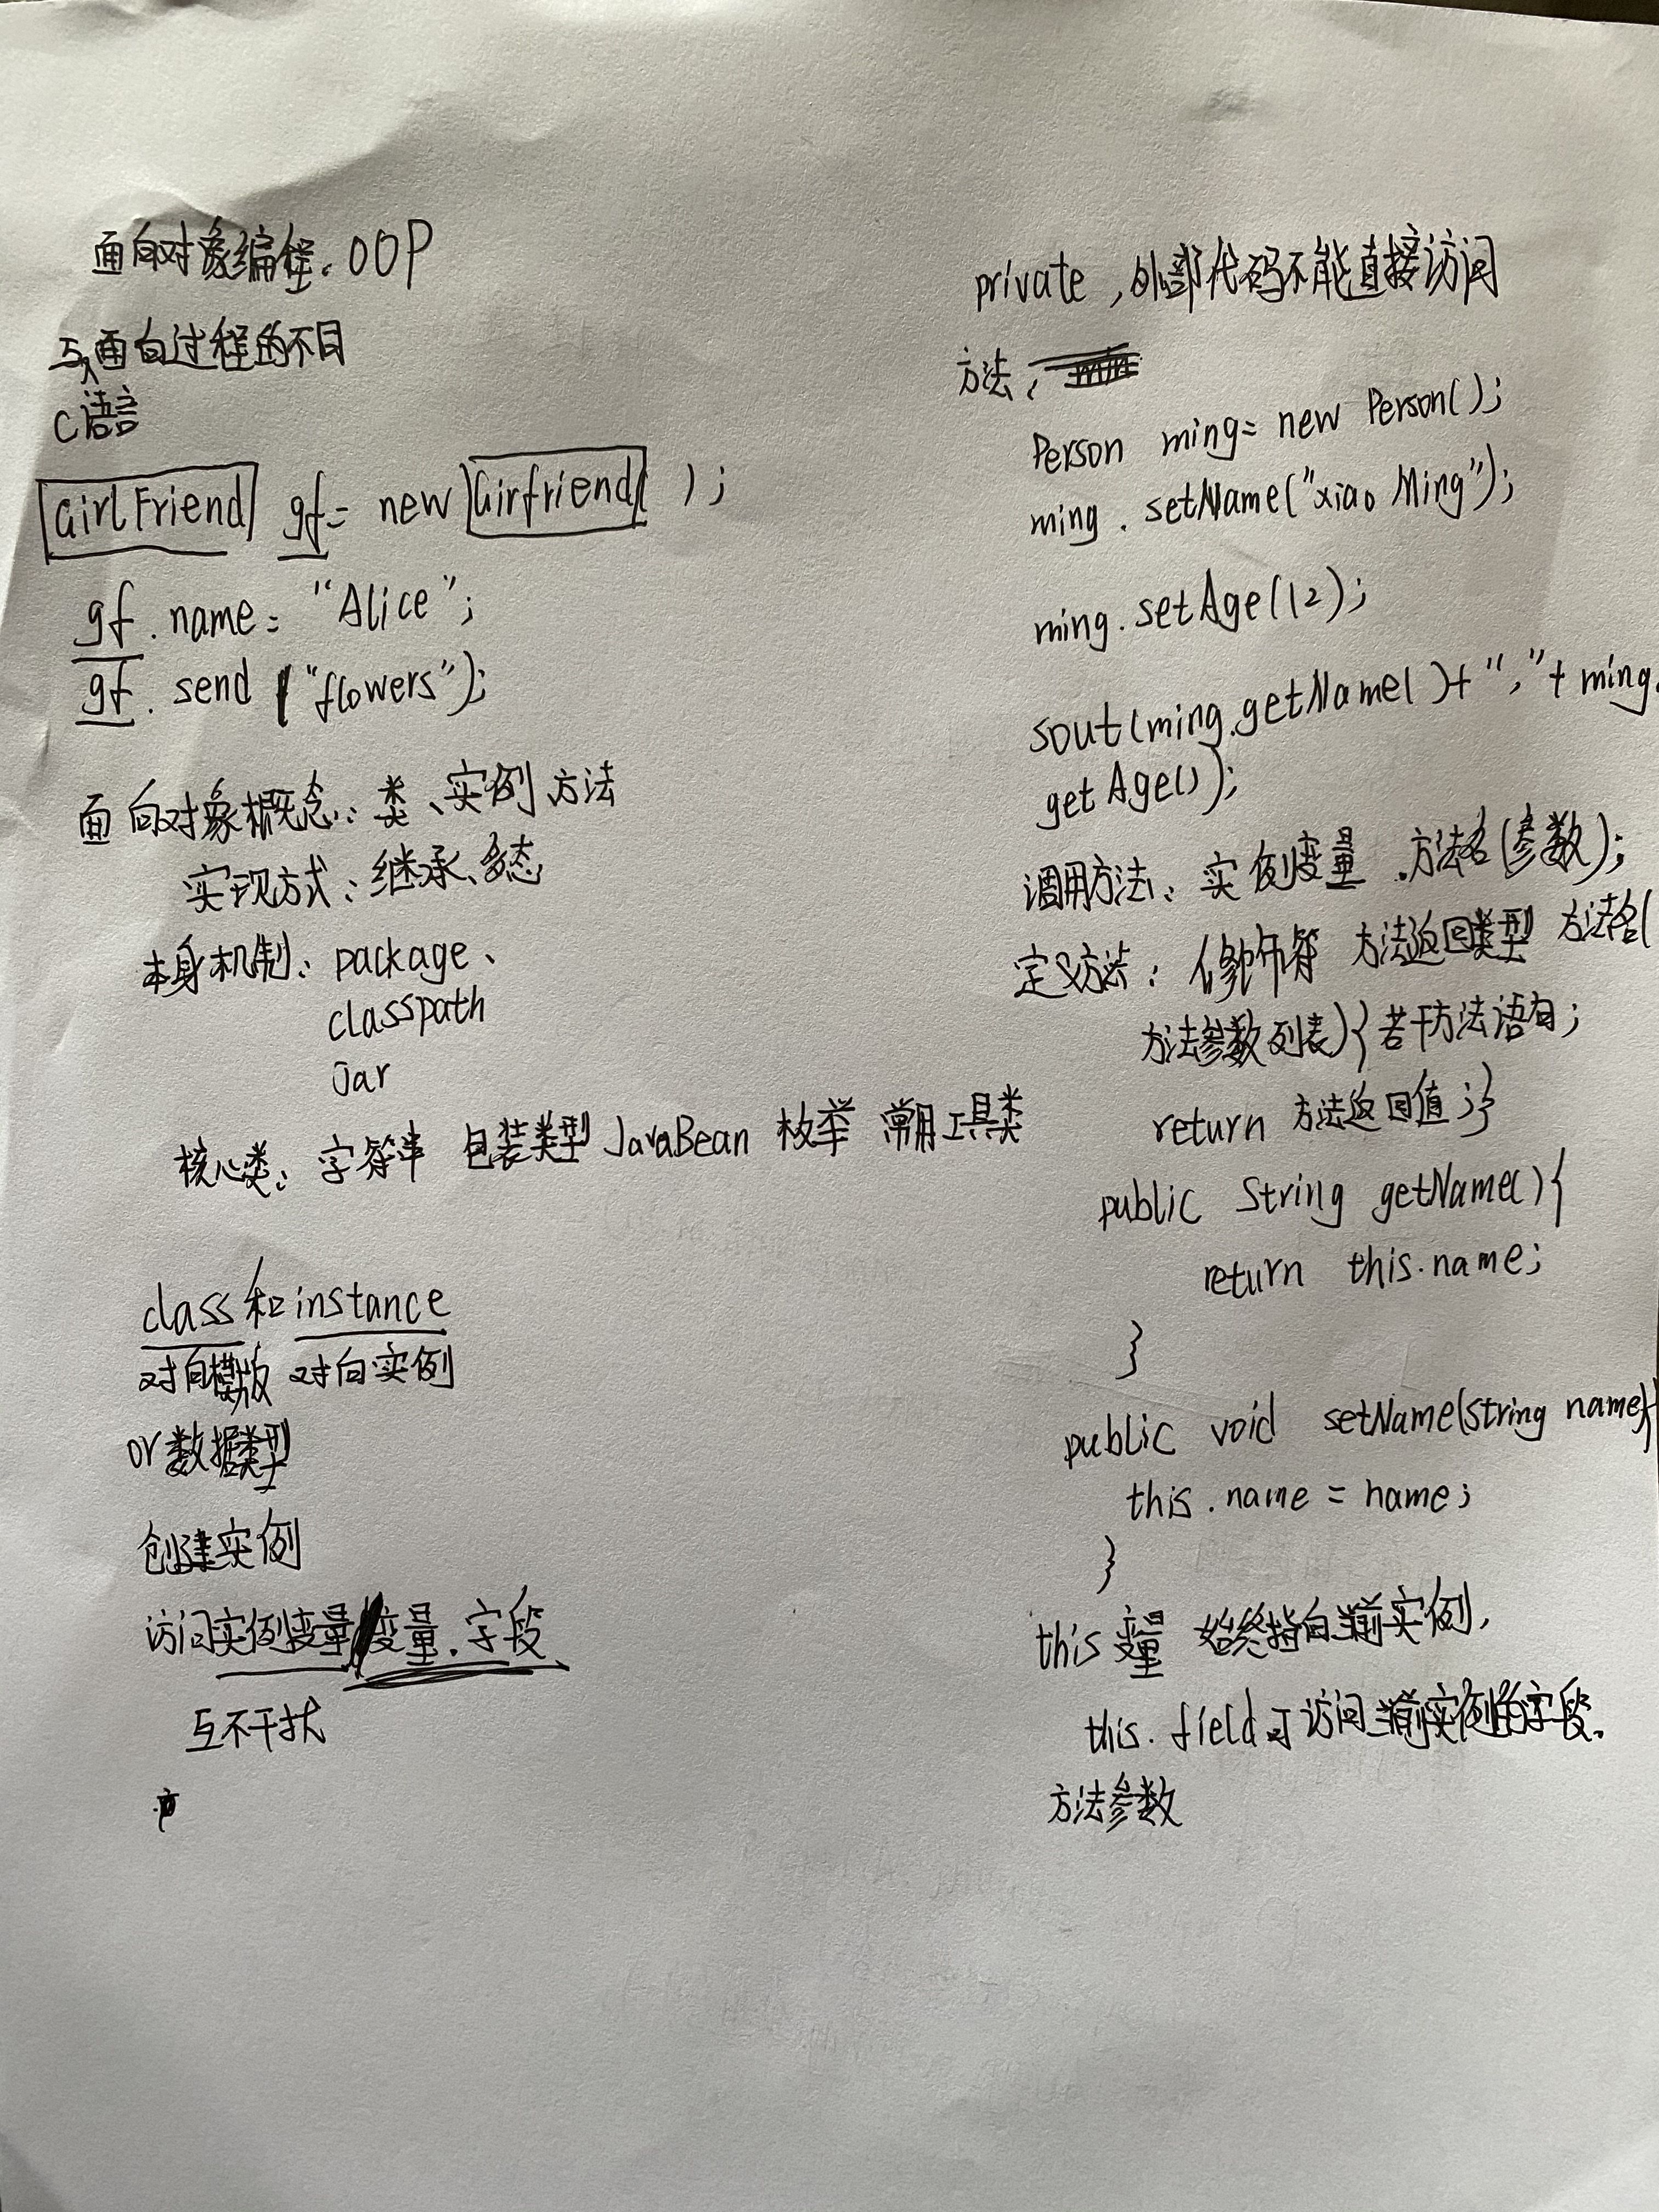 面向对象编程. OOP
与面向过程的不同
C语言
GirlFriend gf= new Girfriend( );
gf. name= "Alice";
gf. send ("flowers");
面向对象概念: 类、实例、方法
实现方式: 继承、多态
本身机制: package、
classpath
Jar
核心类: 字符串 包装类型 JavaBean 枚举 常用工具类
class和instance
对向模版 对向实例
or数据类型
创建实例
访问实例变量 变量. 字段
互不干扰
private ,外部代码不能直接访问
方法:
Person ming= new Person();
ming. setName("xiao Ming");
ming. setAge(12);
sout(ming.getName()+","+ ming.
getAge());
调用方法: 实例变量 .方法名(参数);
定义方法: 修饰符 方法返回类型 方法名(
方法参数列表){若干方法语句;
return 方法返回值;}
public String getName(){
return this.name;
}
public void setName(String name){
this.name = name;
}
this变量 始终指向当前实例,
this.field可访问当前实例的字段.
方法参数